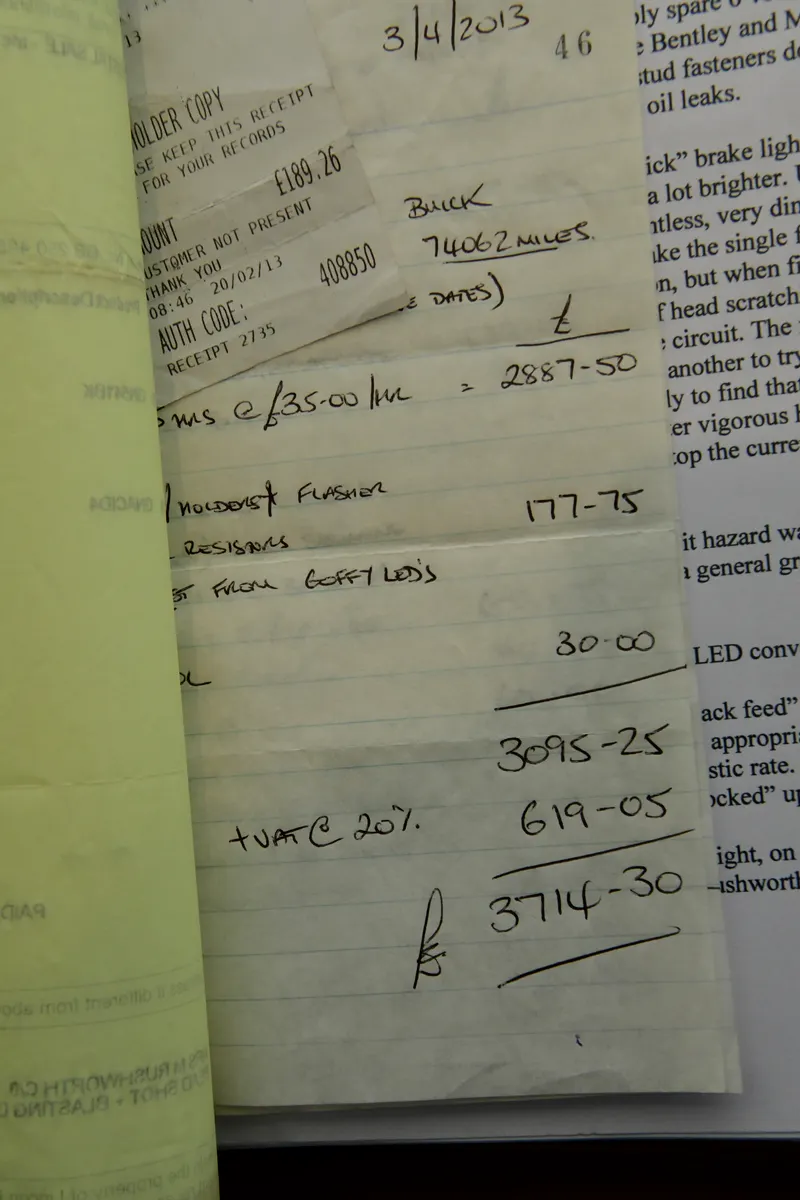 13
3/4/2013
46
HOLDER COPY
KEEP THIS RECEIPT
FOR YOUR RECORDS
£189.26
CUSTOMER NOT PRESENT
THANK YOU
08:46 20/02/13
AUTH CODE: 408850
RECEIPT 2735
BUICK
74062 MILES.
DATES)
£
HRS @ £35.00/HR = 2887-50
/HOLDERS/ FLASHER
RESISTORS 177-75
FROM GOFFY LED'S
30.00
3095-25
+VAT@ 20%. 619-05
£ 3714-30
ply spare
Bentley and M
stud fasteners
oil leaks.
ick" brake ligh
a lot brighter.
ntless, very dim
ke the single f
n, but when fi
f head scratch
circuit. The
another to try
ly to find that
er vigorous
op the curre
it hazard wa
a general gr
LED conv
ack feed"
appropri
stic rate.
ocked" up
ight, on
ushworth
PAID
if different from abo
RUSHWORTH
SHOT + BLASTING
the property of